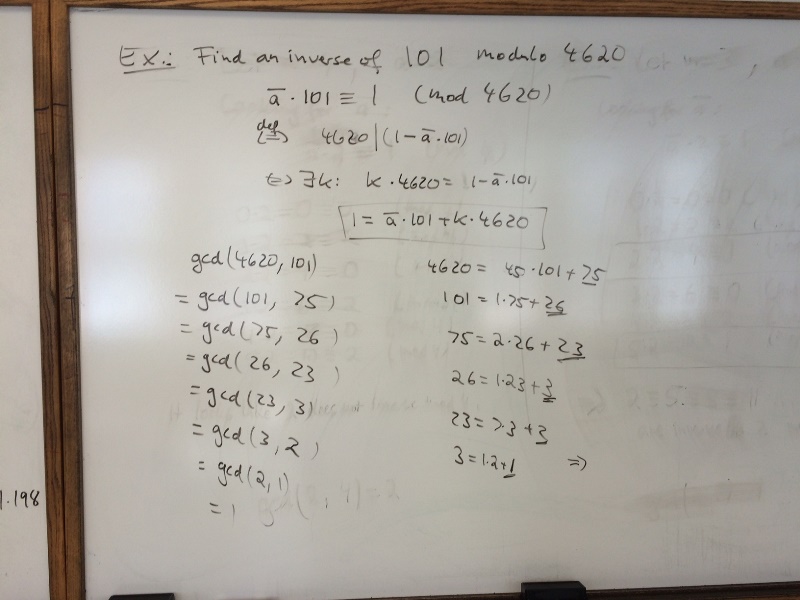 Ex.: Find an inverse of 101 modulo 4620
a̅ · 101 ≡ 1 (mod 4620)
def ⟺ 4620 | (1 - a̅ · 101)
⟺ ∃k: k · 4620 = 1 - a̅ · 101
1 = a̅ · 101 + k · 4620
gcd(4620, 101)
= gcd(101, 75)
= gcd(75, 26)
= gcd(26, 23)
= gcd(23, 3)
= gcd(3, 2)
= gcd(2, 1)
= 1
4620 = 45 · 101 + 75
101 = 1 · 75 + 26
75 = 2 · 26 + 23
26 = 1 · 23 + 3
23 = 7 · 3 +
3 = 1 · 2 + 1 ⇒
1.198